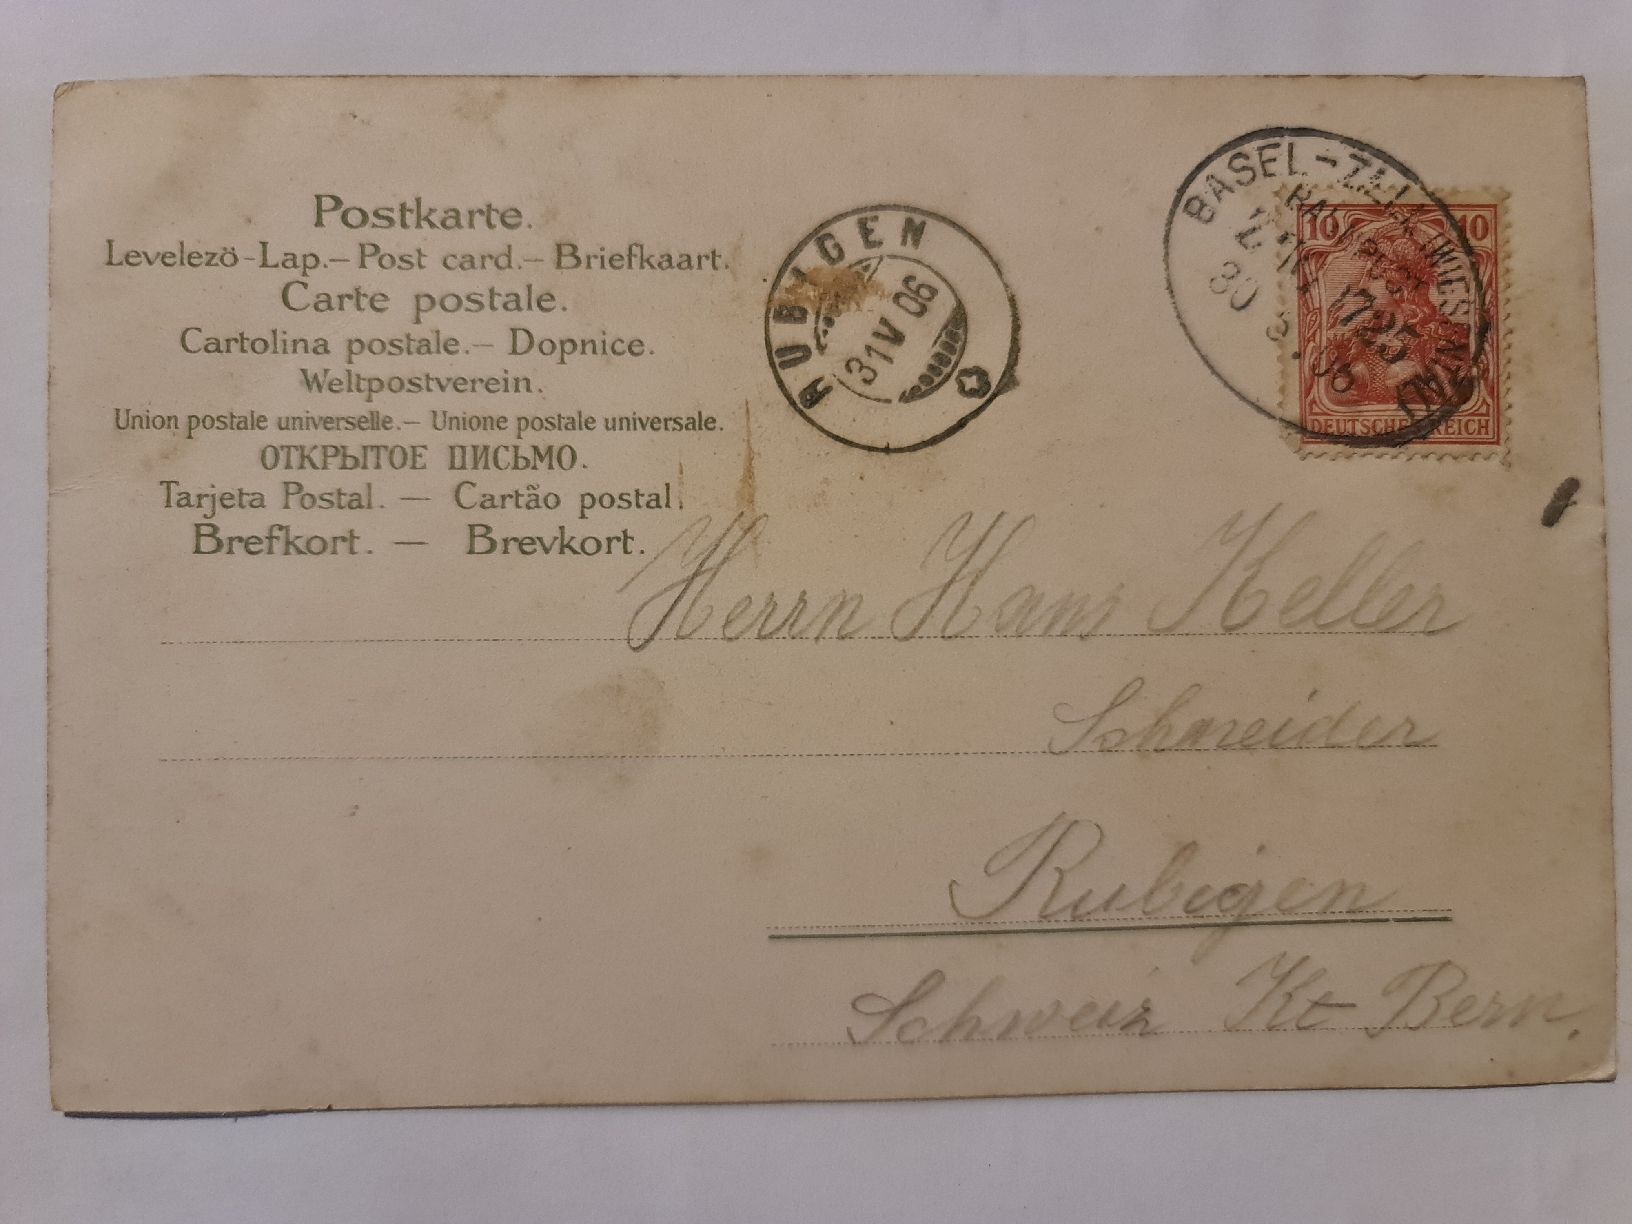 Postkarte.
Levelezö-Lap.– Post card.– Briefkaart.
Carte postale.
Cartolina postale.– Dopnice.
Weltpostverein.
Union postale universelle.– Unione postale universale.
ОТКРЫТОЕ ПИСЬМО.
Tarjeta Postal. — Cartão postal.
Brefkort. — Brevkort.
RUBIGEN
31 V 06
BASEL - ZELL (WIESENTAL)
BAHNPOST
ZUG 1725
30 5. 06
10 10
DEUTSCHES REICH
Herrn Hans Keller
Schneider
Rubigen
Schweiz Kt Bern.